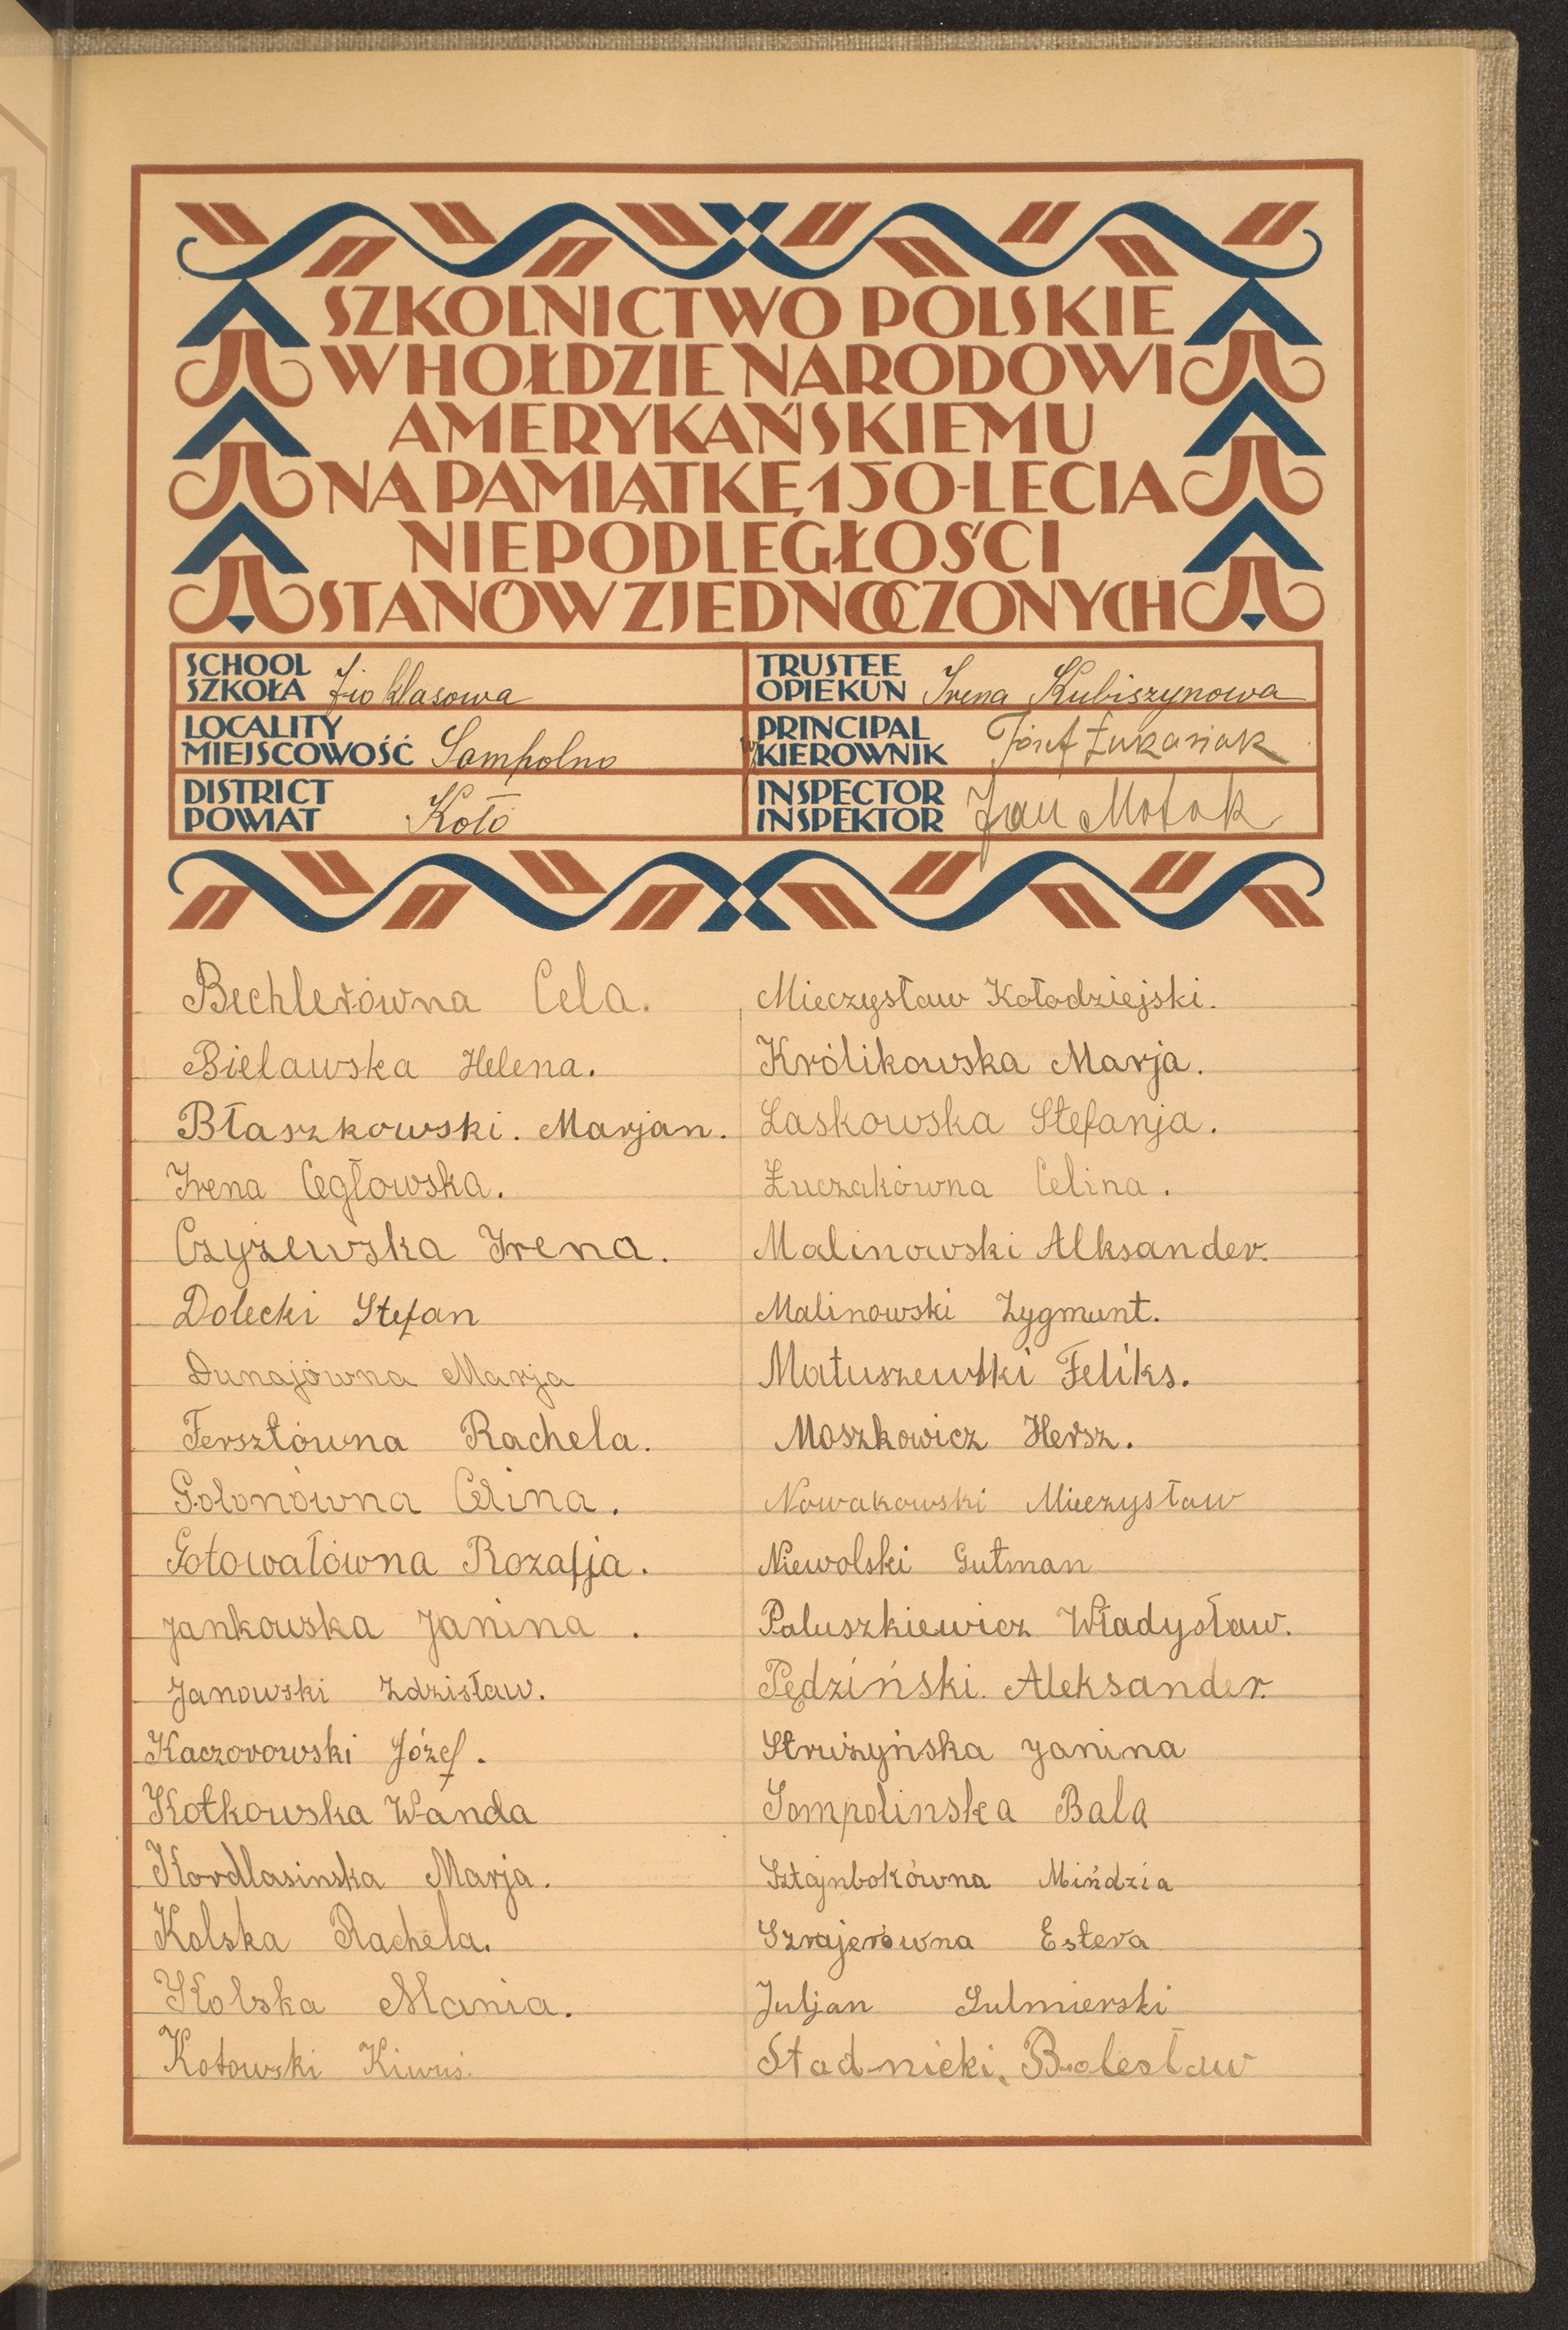 SZKOLNICTWO POLSKIE
W HOŁDZIE NARODOWI
AMERYKAŃSKIEMU
NA PAMIĄTKĘ 150-LECIA
NIEPODLEGŁOŚCI
STANÓW ZJEDNOCZONYCH
SCHOOL
SZKOŁA 7io klasowa
LOCALITY
MIEJSCOWOŚĆ Sompolno
DISTRICT
POWIAT Koło
TRUSTEE
OPIEKUN Irena Kubiszynowa
PRINCIPAL
KIEROWNIK Józef Łukasiak
INSPECTOR
INSPEKTOR Jan Motak
Bechlerówna Cela.
Bielawska Helena.
Błaszkowski. Marjan.
Irena Cegłowska.
Czyżewska Irena.
Dolecki Stefan
Dunajówna Marja
Fersztówna Rachela.
Golonówna Celina.
Gotowałówna Rozalja.
Jankowska Janina.
Janowski Zdzisław.
Kaczorowski Józef.
Kotkowska Wanda
Kordlasinska Marja.
Kolska Rachela.
Kolska Mania.
Kotowski Kiwuś.
Mieczysław Kołodziejski.
Królikowska Marja.
Laskowska Stefanja.
Łuczakówna Celina.
Malinowski Alksander.
Malinowski Zygmunt.
Matuszewski Feliks.
Moszkowicz Hersz.
Nowakowski Mieczysław
Niewolski Gutman
Paluszkiewicz Władysław.
Pędziński. Aleksander.
Strużyńska Janina
Sompolinska Bala
Sztajnbokówna Mińdzia
Szrajerówna Estera
Juljan Sulmierski
Stadnicki, Bolesław